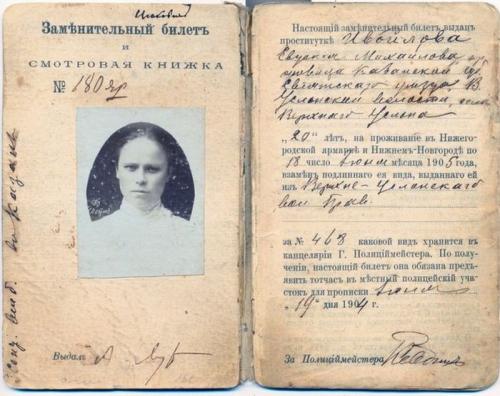 Замѣнительный билетъ
и
СМОТРОВАЯ КНИЖКА
№ 180 яр
Выдалъ
Настоящій замѣнительный билетъ выданъ
проституткѣ Ивойлова
Евдокія Михайлова
Казанской губ.
Свіяжскаго уѣзда В.
Услонской волости, села
Верхняго Услона
„20“ лѣтъ, на проживаніе въ Нижего-
родской ярмаркѣ и Нижнемъ-Новгородѣ по
18 число Іюля мѣсяца 1905 года,
взамѣнъ подлиннаго ея вида, выданнаго ей
изъ Верхне-Услонскаго
вол прав
за № 468 каковой видъ хранится въ
канцеляріи Г. Полиціймейстера. По по-
лученіи, настоящій билетъ она обязана предъ-
явить тотчасъ въ мѣстный полицейскій уча-
стокъ для прописки Іюля
„19“ дня 1904 г.
За Полиціймейстера